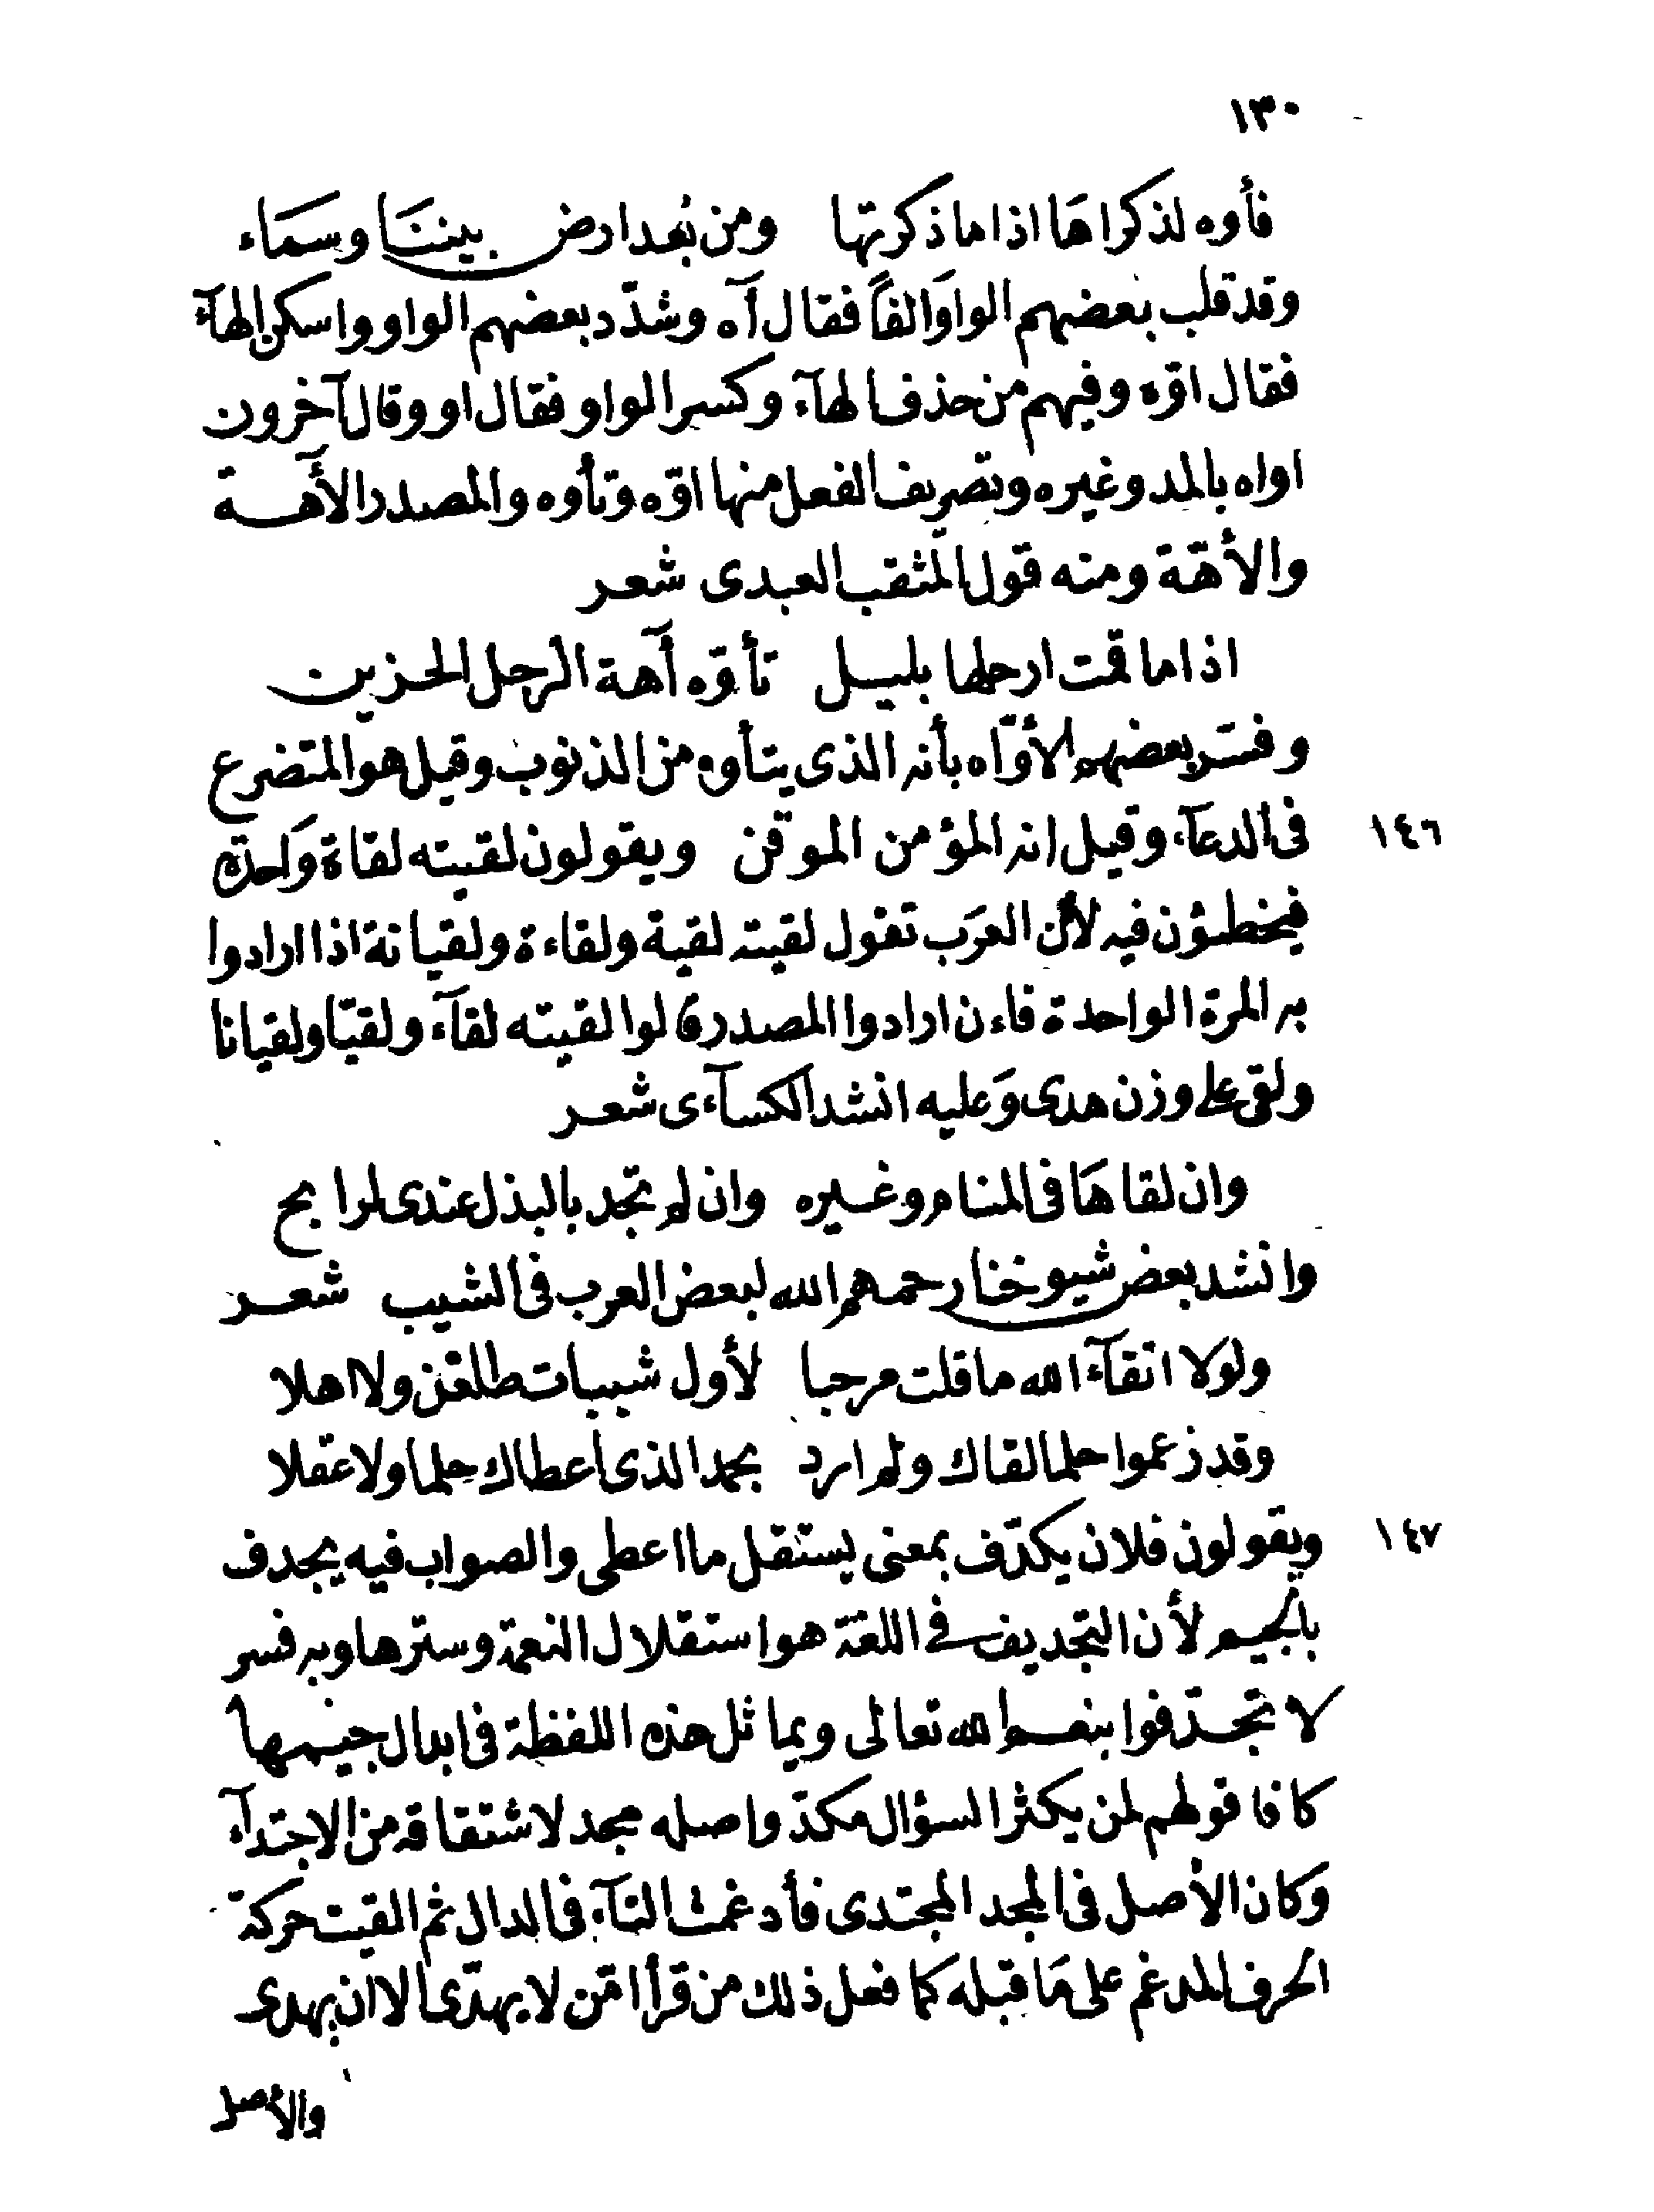 ١٣٠
فأوه لذكراها اذا ما ذكرتها ومن بعد ارض بيننا وسماء
وقد قلب بعضهم الواو الفاً فقال آه وشدّد بعضهم الواو واسكن الهآء
فقال اوّه وفيهم من حذف الهآء وكسر الواو فقال او وقال آخرون
اواه بالمد وغيره وتصريف الفعل منها اوّه وتأوه والمصدر الآهة
والأهّة ومنه قول المثقب العبدى شعر
اذا ما قمت ارحلها بليل تأوّه آهة الرجل الحزين
وفسّر بعضهم الأوّاه بأنه الذى يتأوه من الذنوب وقيل هو المتضرع
١٤٦ فى الدعآء وقيل انه المؤمن الموقن ويقولون لقيته لقاة واحدة
فيخطئون فيه لأن العرب تقول لقيته لقية ولقاءة ولقيانة اذا ارادوا
به المرة الواحدة فاءن ارادوا المصدر قالوا لقيته لقآء ولقيّا ولقيانا
ولقى على وزن هدى وعليه انشد الكسآءى شعر
وان لقاها فى المنام وغيره وان لم تجد بالبذل عندى لرابح
وانشد بعض شيوخنا رحمهم الله لبعض العرب فى الشيب شعر
ولولا اتقآء الله ما قلت مرحبا لأول شيبات طلعن ولا اهلا
وقد زعموا حلما لقاك ولم ارد بحمد الذى اعطاك حلما ولا عقلا
١٤٧ ويقولون فلان يكدّف بمعنى يستقل ما اعطى والصواب فيه يجدف
بالجيم لأن التجديف فى اللغة هو استقلال النعمة وسترها وبه فسر
لا تجدّفوا بنعم الله تعالى ويماثل هذه اللفظة فى ابدال جيمها
كافا قولهم لمن يكثر السؤال مكدّ واصله مجد لاشتقاقه من الاجتدآء
وكان الأصل فى المجد المجتدى فأدغمت التآء فى الدال ثم القيت حركة
الحرف المدغم على ما قبله كما فعل ذلك من قرأ امّن لا يهدّى الا ان يهدى
والأصل